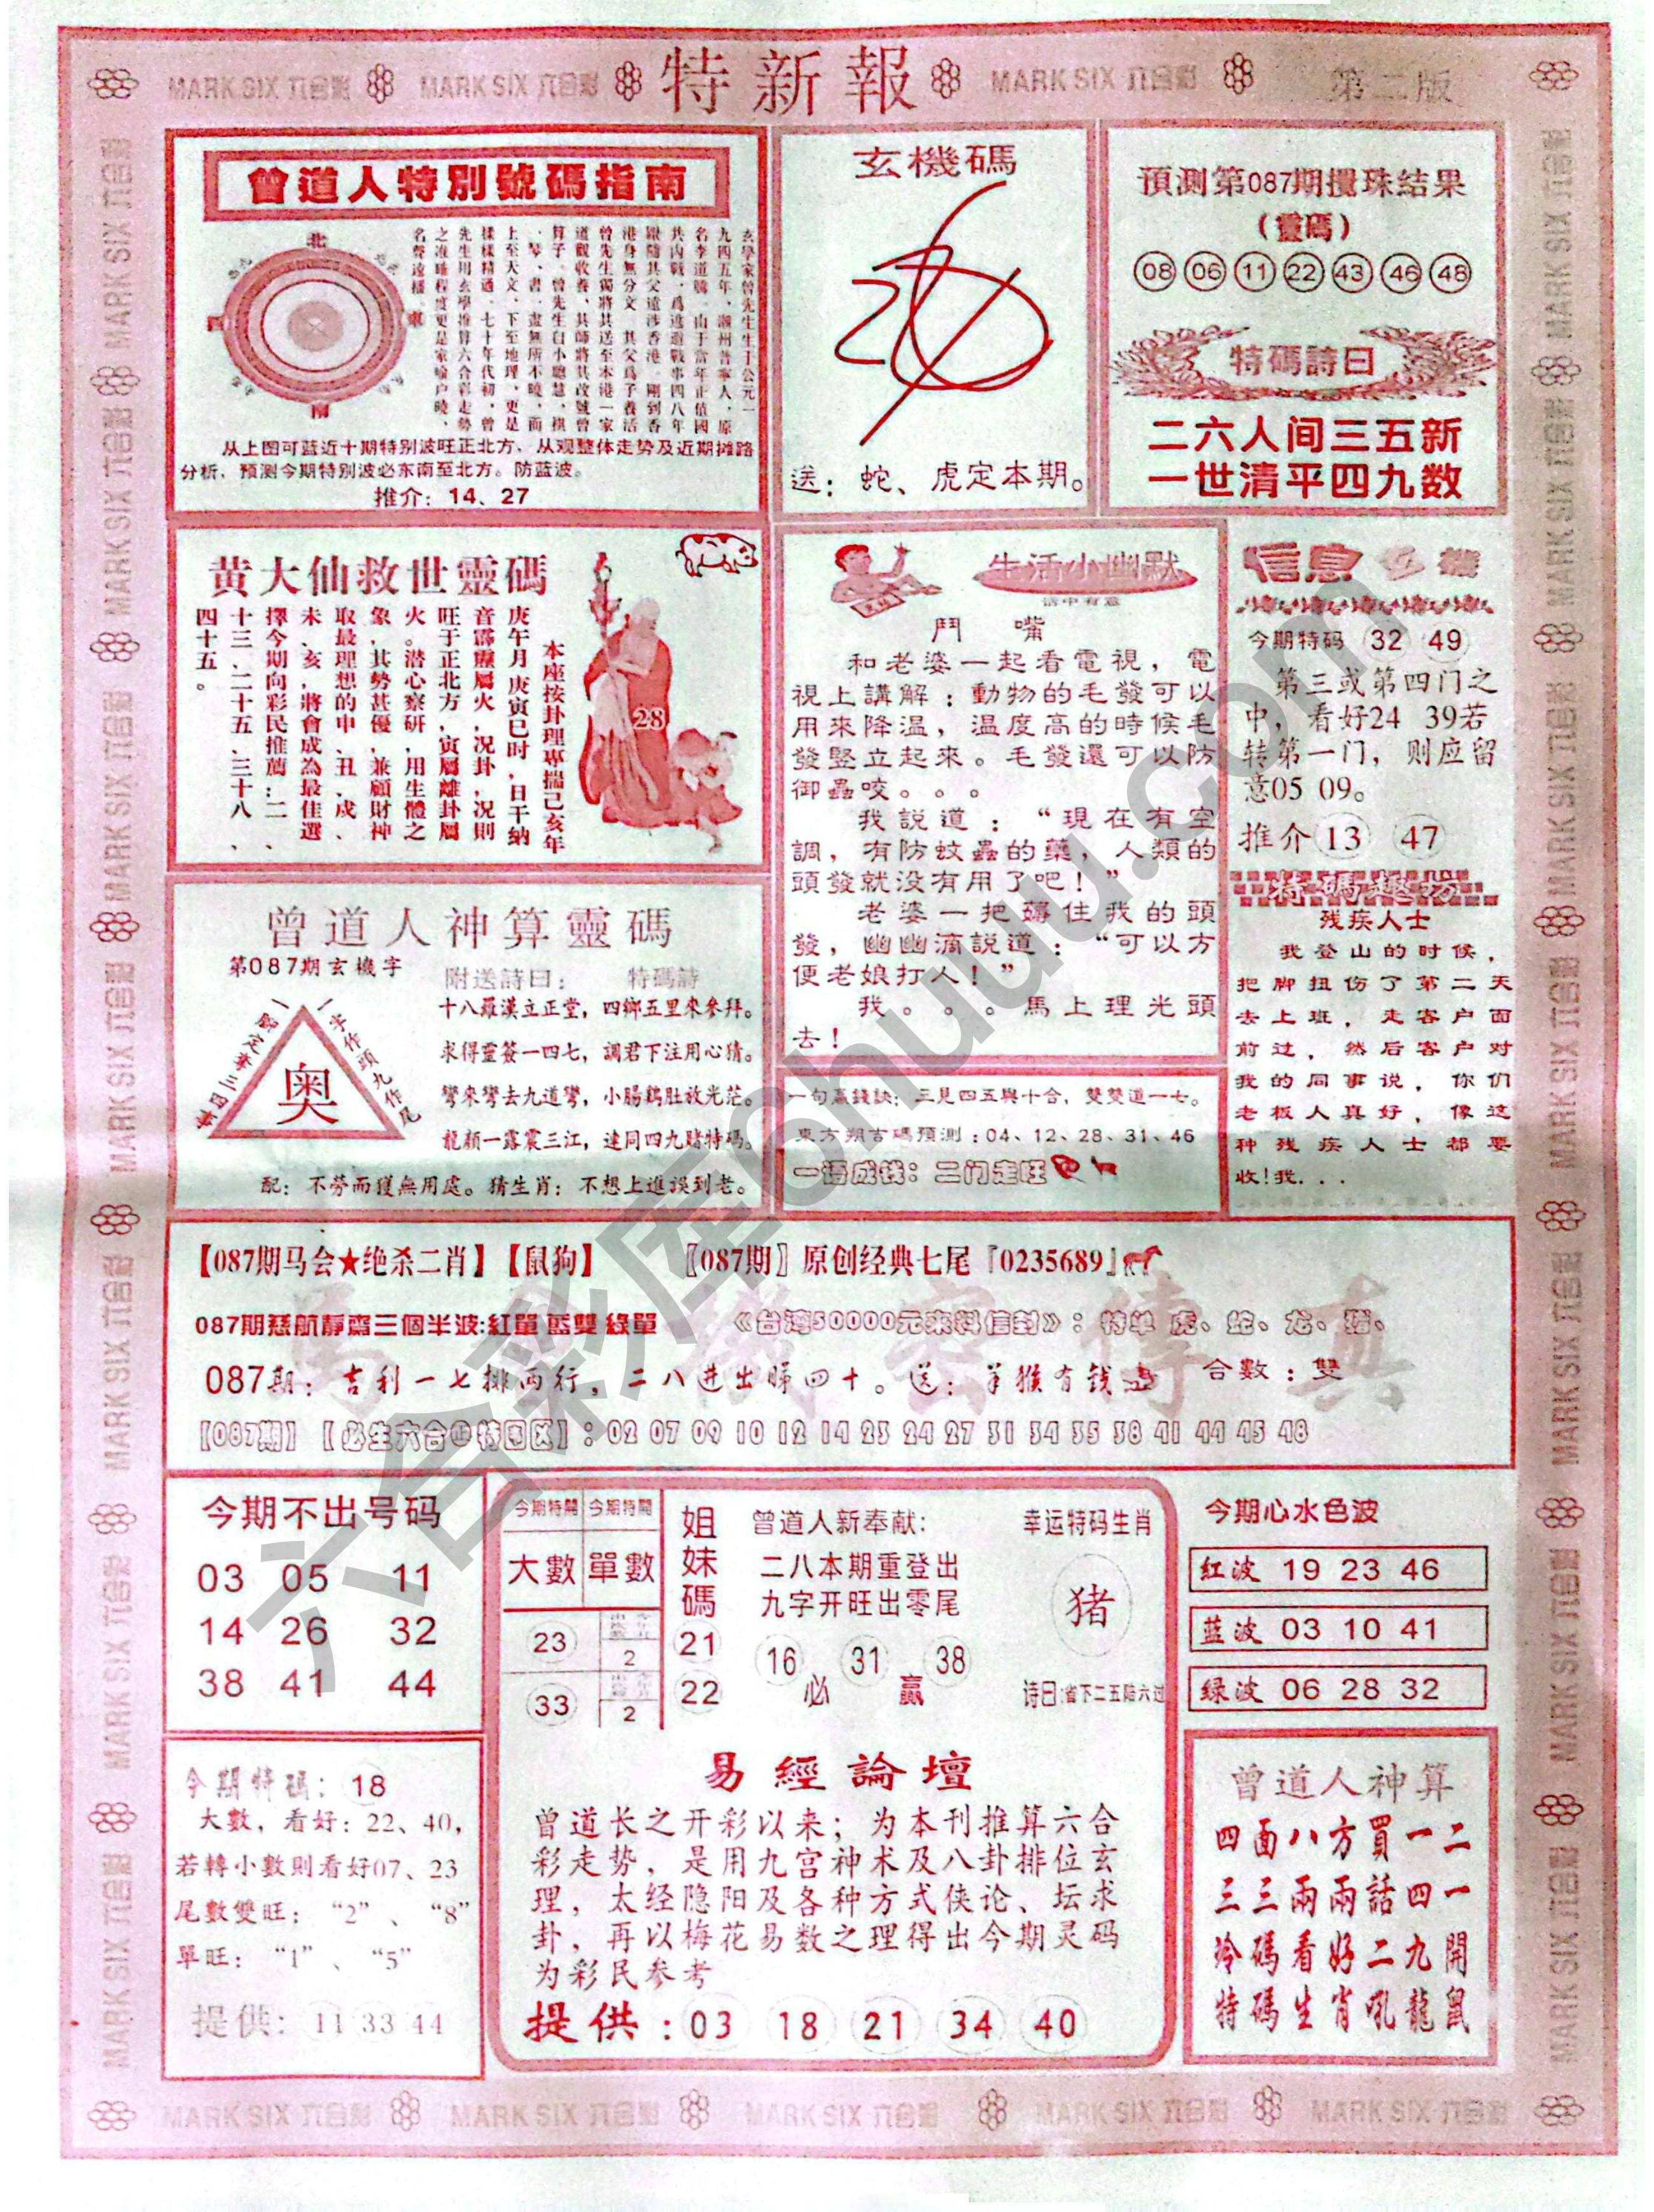 特新報
MARK SIX 六合彩
第二版
曾道人特別號碼指南
北
東
南
西
玄學家曾先生生于公元一
九四五年，潮州普寧人，原
名李道勝。由于當年正值國
共內戰，爲逃避戰事四八年
跟隨其父遠涉香港。剛到香
港身無分文，其父爲了養活
曾先生獨將其送至本港一家
道觀收養，其師將其改號曾
算子。曾先生自小聰慧，棋
、琴、書、畫無所不曉，而
上至天文、下至地理，更是
樣樣精通。七十年代初，曾
先生用玄學推算六合彩走勢
之准確程度更是家喻户曉、
名聲遠播。
从上图可蓝近十期特别波旺正北方、从观整体走势及近期摊路
分析，预测今期特别波必东南至北方。防蓝波。
推介：14、27
玄機碼
送：蛇、虎定本期。
預測第087期攪珠結果
（靈碼）
08 06 11 22 43 46 48
特碼詩曰
二六人间三五新
一世清平四九数
黄大仙救世靈碼
本座按卦理專揣己亥年
庚午月庚寅巳时，日干纳
音霹靂屬火，况卦，况則
旺于正北方，寅屬離卦屬
火。潜心察研，用生體之
象，其勢甚優，兼顧財神
取最理想的申、丑、戌、
未、亥，將會成為最佳選
擇今期向彩民推薦：二、
十三、二十五、三十八、
四十五。
28
生活小幽默
鬥嘴
和老婆一起看電視，電
視上講解：動物的毛發可以
用來降温，温度高的時候毛
發竪立起來。毛發還可以防
御蟲咬。。。
我説道：“現在有空
調，有防蚊蟲的藥，人類的
頭發就没有用了吧！”
老婆一把薅住我的頭
發，幽幽滴説道：“可以方
便老娘打人！”
我。。。馬上理光頭
去！
今期特码 32 49
第三或第四门之
中，看好24 39若
转第一门，则应留
意05 09。
推介 13 47
特碼趣坊
残疾人士
我登山的时候，
把脚扭伤了第二天
去上班，走客户面
前过，然后客户对
我的同事说，你们
老板人真好，像这
种残疾人士都要
收！我...
曾道人神算靈碼
第087期玄機字
附送詩曰： 特碼詩
一字作頭九作尾
奥
十八羅漢立正堂，四鄉五里來參拜。
求得靈簽一四七，調君下注用心猜。
彎來彎去九道彎，小腸鷄肚放光茫。
龍顏一露震三江，連同四九賭特碼。
配：不勞而獲無用處。猜生肖：不想上進誤到老。
一句贏錢訣：三見四五與十合，雙雙道一七。
東方朔吉碼預測：04、12、28、31、46
一语成钱：二门走旺
【087期马会★绝杀二肖】【鼠狗】
〖087期〗原创经典七尾『0235689』
087期慈航靜齋三個半波:紅單 藍雙 綠單
《台湾50000元来料信封》：特单 虎、蛇、龙、猪、
087期：吉利一七排两行，二八进出睇四十。送：羊猴有钱
合數：雙
【087期】【必生六合】：02 07 09 10 12 14 23 24 27 31 34 35 38 41 44 45 48
今期不出号码
03 05 11
14 26 32
38 41 44
今期特開 今期特開
大數 單數
23 2
33 2
姐妹碼
21
22
曾道人新奉献：
二八本期重登出
九字开旺出零尾
16 31 38
必 赢
幸运特码生肖
猪
诗曰:省下二五陪六过
今期心水色波
红波 19 23 46
蓝波 03 10 41
绿波 06 28 32
今期特碼：18
大數，看好：22、40，
若轉小數則看好07、23
尾數雙旺：“2”、“8”
單旺：“1”、“5”
提供：11 33 44
易經論壇
曾道长之开彩以来；为本刊推算六合
彩走势，是用九宫神术及八卦排位玄
理，太经隐阳及各种方式侠论、坛求
卦，再以梅花易数之理得出今期灵码
为彩民参考
提供：03 18 21 34 40
曾道人神算
四面八方買一二
三三兩兩話四一
冷碼看好二九開
特碼生肖吼龍鼠
六合彩库ohuu.com